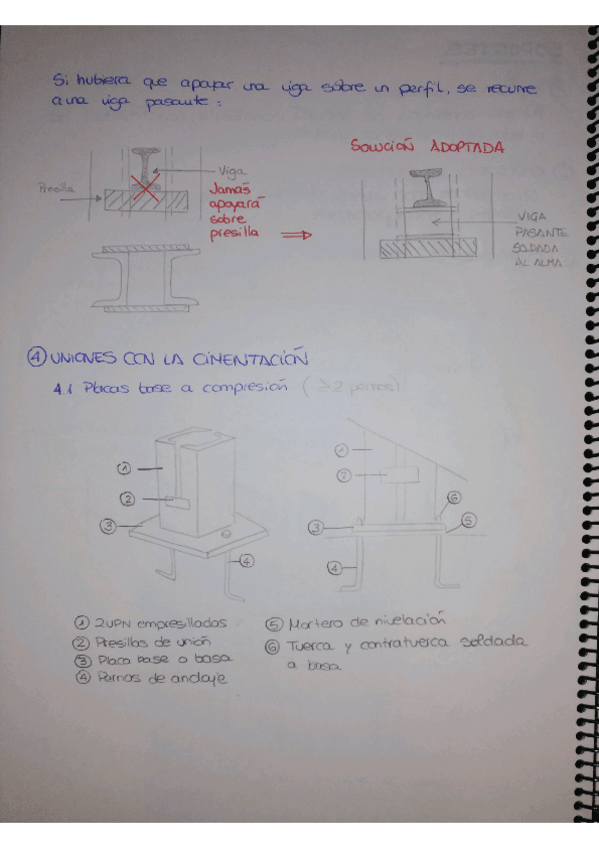 Si hubiera que apoyar una viga sobre un perfil, se recurre
a una viga pasante:
SOLUCIÓN ADOPTADA
Presilla
Viga
Jamás
apoyará
sobre
presilla
VIGA
PASANTE
SOLDADA
AL ALMA
④ UNIONES CON LA CIMENTACIÓN
4.1 Placas base a compresión (≥2 pernos)
①
②
③
④
①
②
③
④
⑥
⑤
① 2UPN empresillados
② Presillas de unión
③ Placa base o basa
④ Pernos de anclaje
⑤ Mortero de nivelación
⑥ Tuerca y contratuerca soldada
a basa